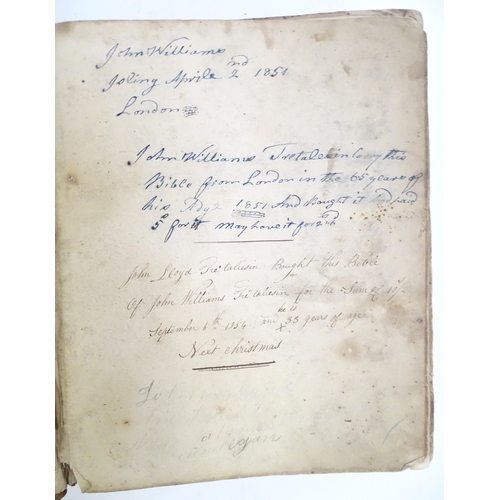 John Williams
Isling Aprile 2nd 1851
London
John Williams Tretaliesin this
Bible from London in the 65 years of
his Age 1851 And Bought it And paid
5s for it may have it for
John Lloyd Tre'taliesin Bought This Bible
Of John Williams Tre'taliesin for the Sum of
September 6th 1854 and he is + 33 years of age
Next christmas